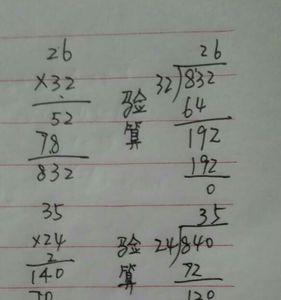 26
×32
52
78
832
验算
26
32)832
64
192
192
0
35
×24
2
140
70
验算
35
24)840
72
120